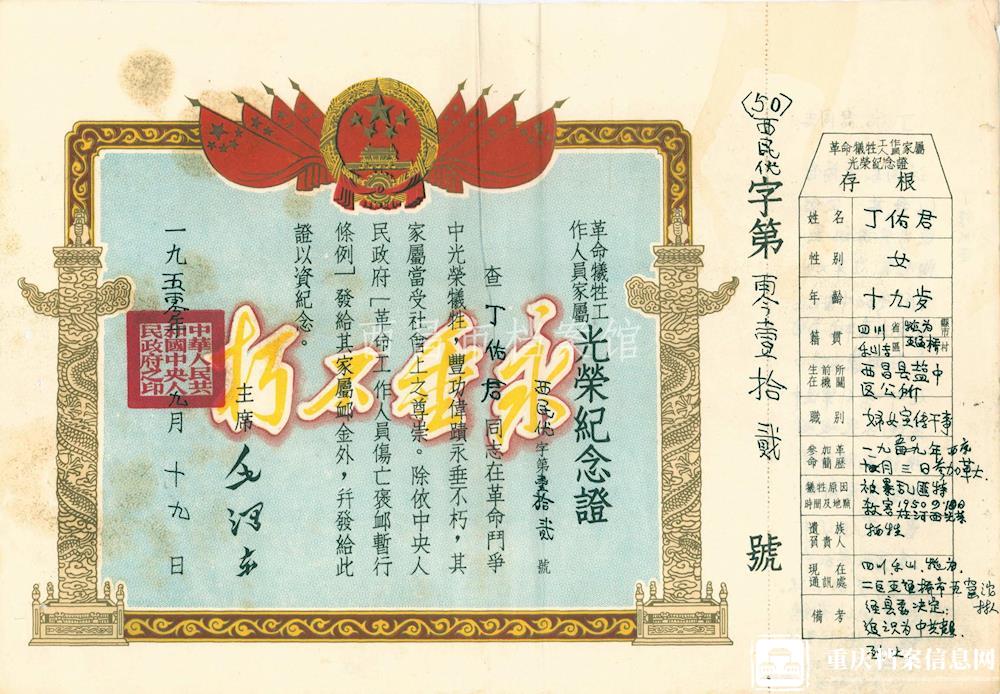 革命犧牲工作人員家屬光榮紀念證
西民优字第壹拾貳號
查丁佑君同志在革命鬥爭
中光榮犧牲,豐功偉蹟永垂不朽,其
家屬當受社會上之尊崇。除依中央人
民政府「革命工作人員傷亡褒卹暫行
條例」發給其家屬卹金外,幷發給此
證以資紀念。
主席 毛澤东
一九五零年九月十九日
永垂不朽
中華人民共
和國中央人
民政府之印
西昌市档案馆
〈50〉西民优字第零壹拾貳號
革命犧牲工作人員家屬
光榮紀念證
存根
姓名 丁佑君
性別 女
年齡 十九岁
籍貫 四川省乐山专區 犍为縣市 五区橋村
生前所在機關 西昌县盐中区公所
職別 妇女宣传干事
參加革命簡歷 一九五〇年 月三日参加革大
犧牲原因時間及地點 被暴乱匪特杀害1950 在河西
遺族負責人
現在通訊處 四川乐山犍为二区五 橋市五
備考 经县委决定:追认为中共党员
重庆档案信息网